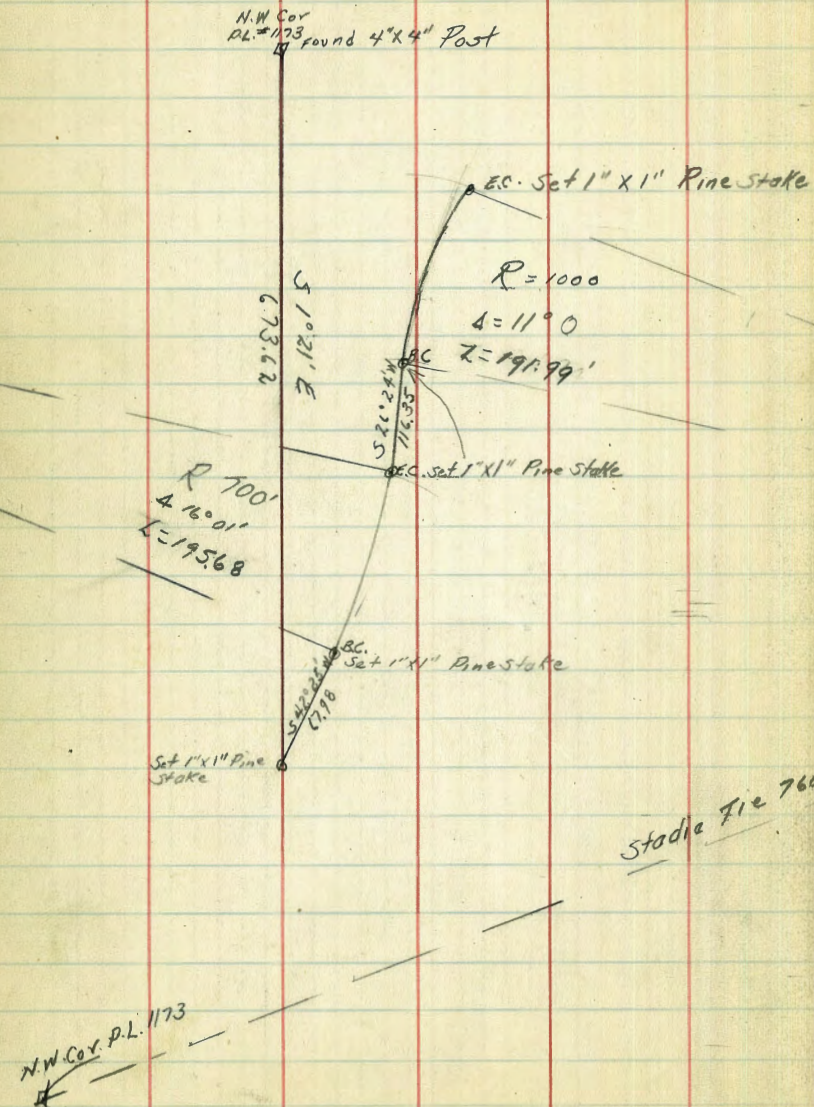 N.W Cor
P.L.#1173
Found 4"x4" Post
E.C. Set 1" x 1" Pine Stake
S 1°21' E
673.62
R = 1000
Δ = 11° 0
L = 191.99'
B.C
S 26° 24' W
116.35
E.C. Set 1"x1" Pine Stake
R 700'
Δ 16° 01'
L = 195.68
B.C.
Set 1"x1" Pine Stake
S 42° 25' W
67.98
Set 1"x1" Pine
Stake
Stadia Tie 760
N.W. Cor. P.L. 1173